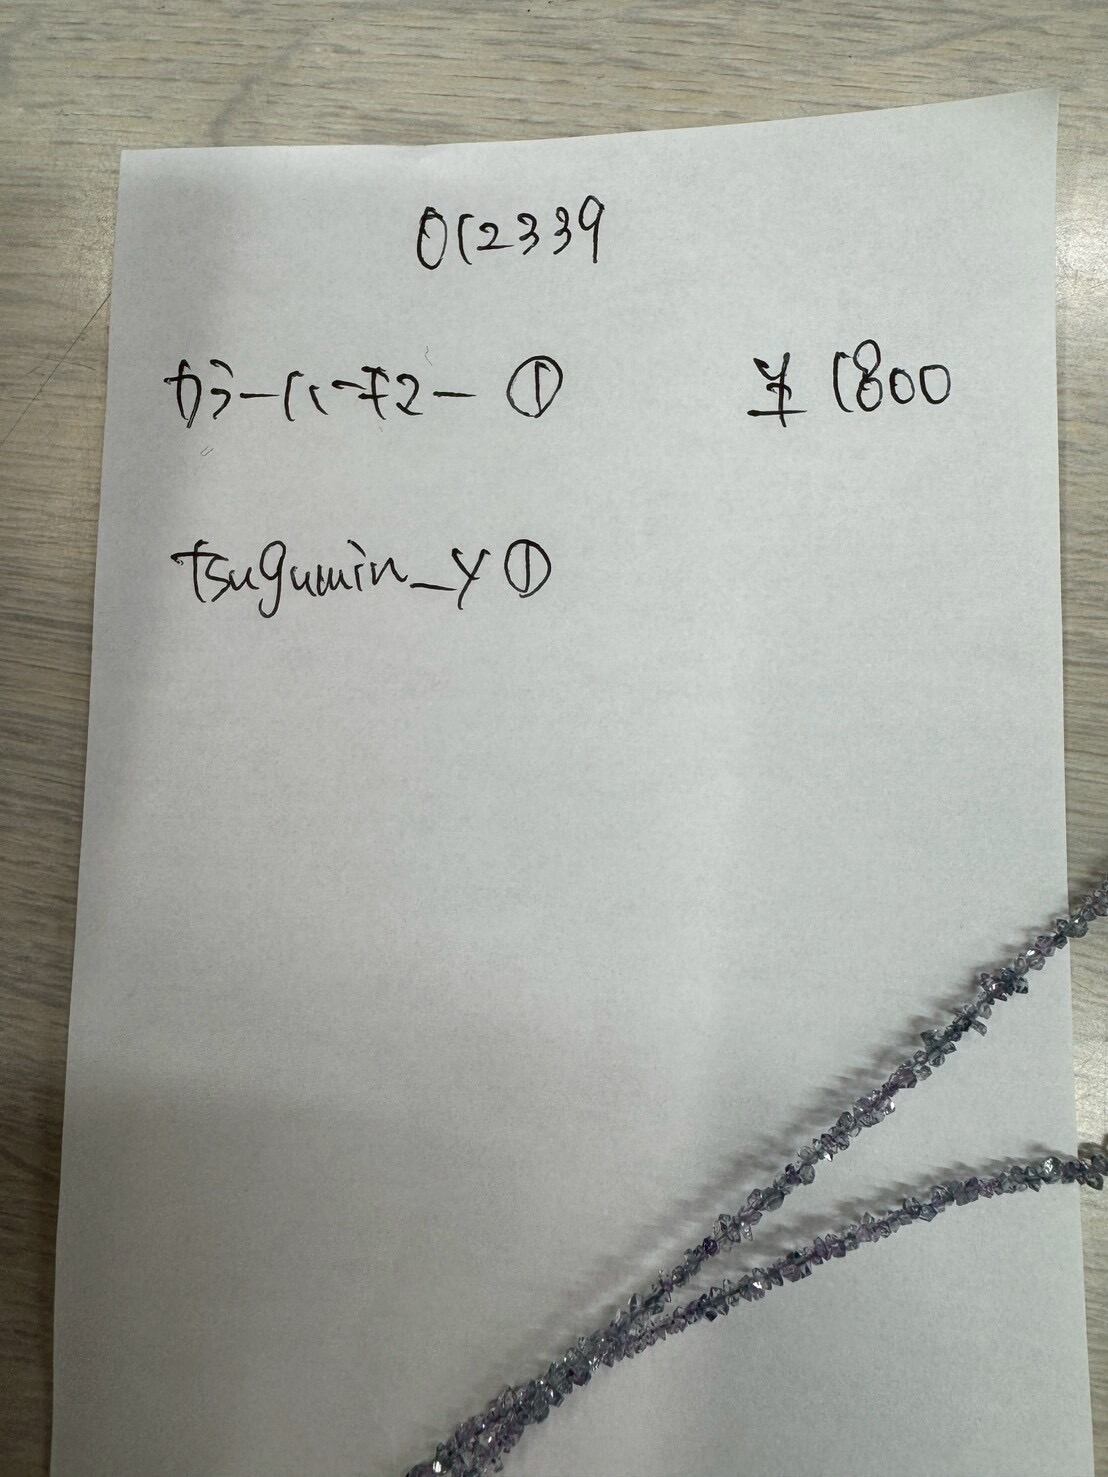 012339
カラーハーモニー ① ¥1800
tsugumin_y ①